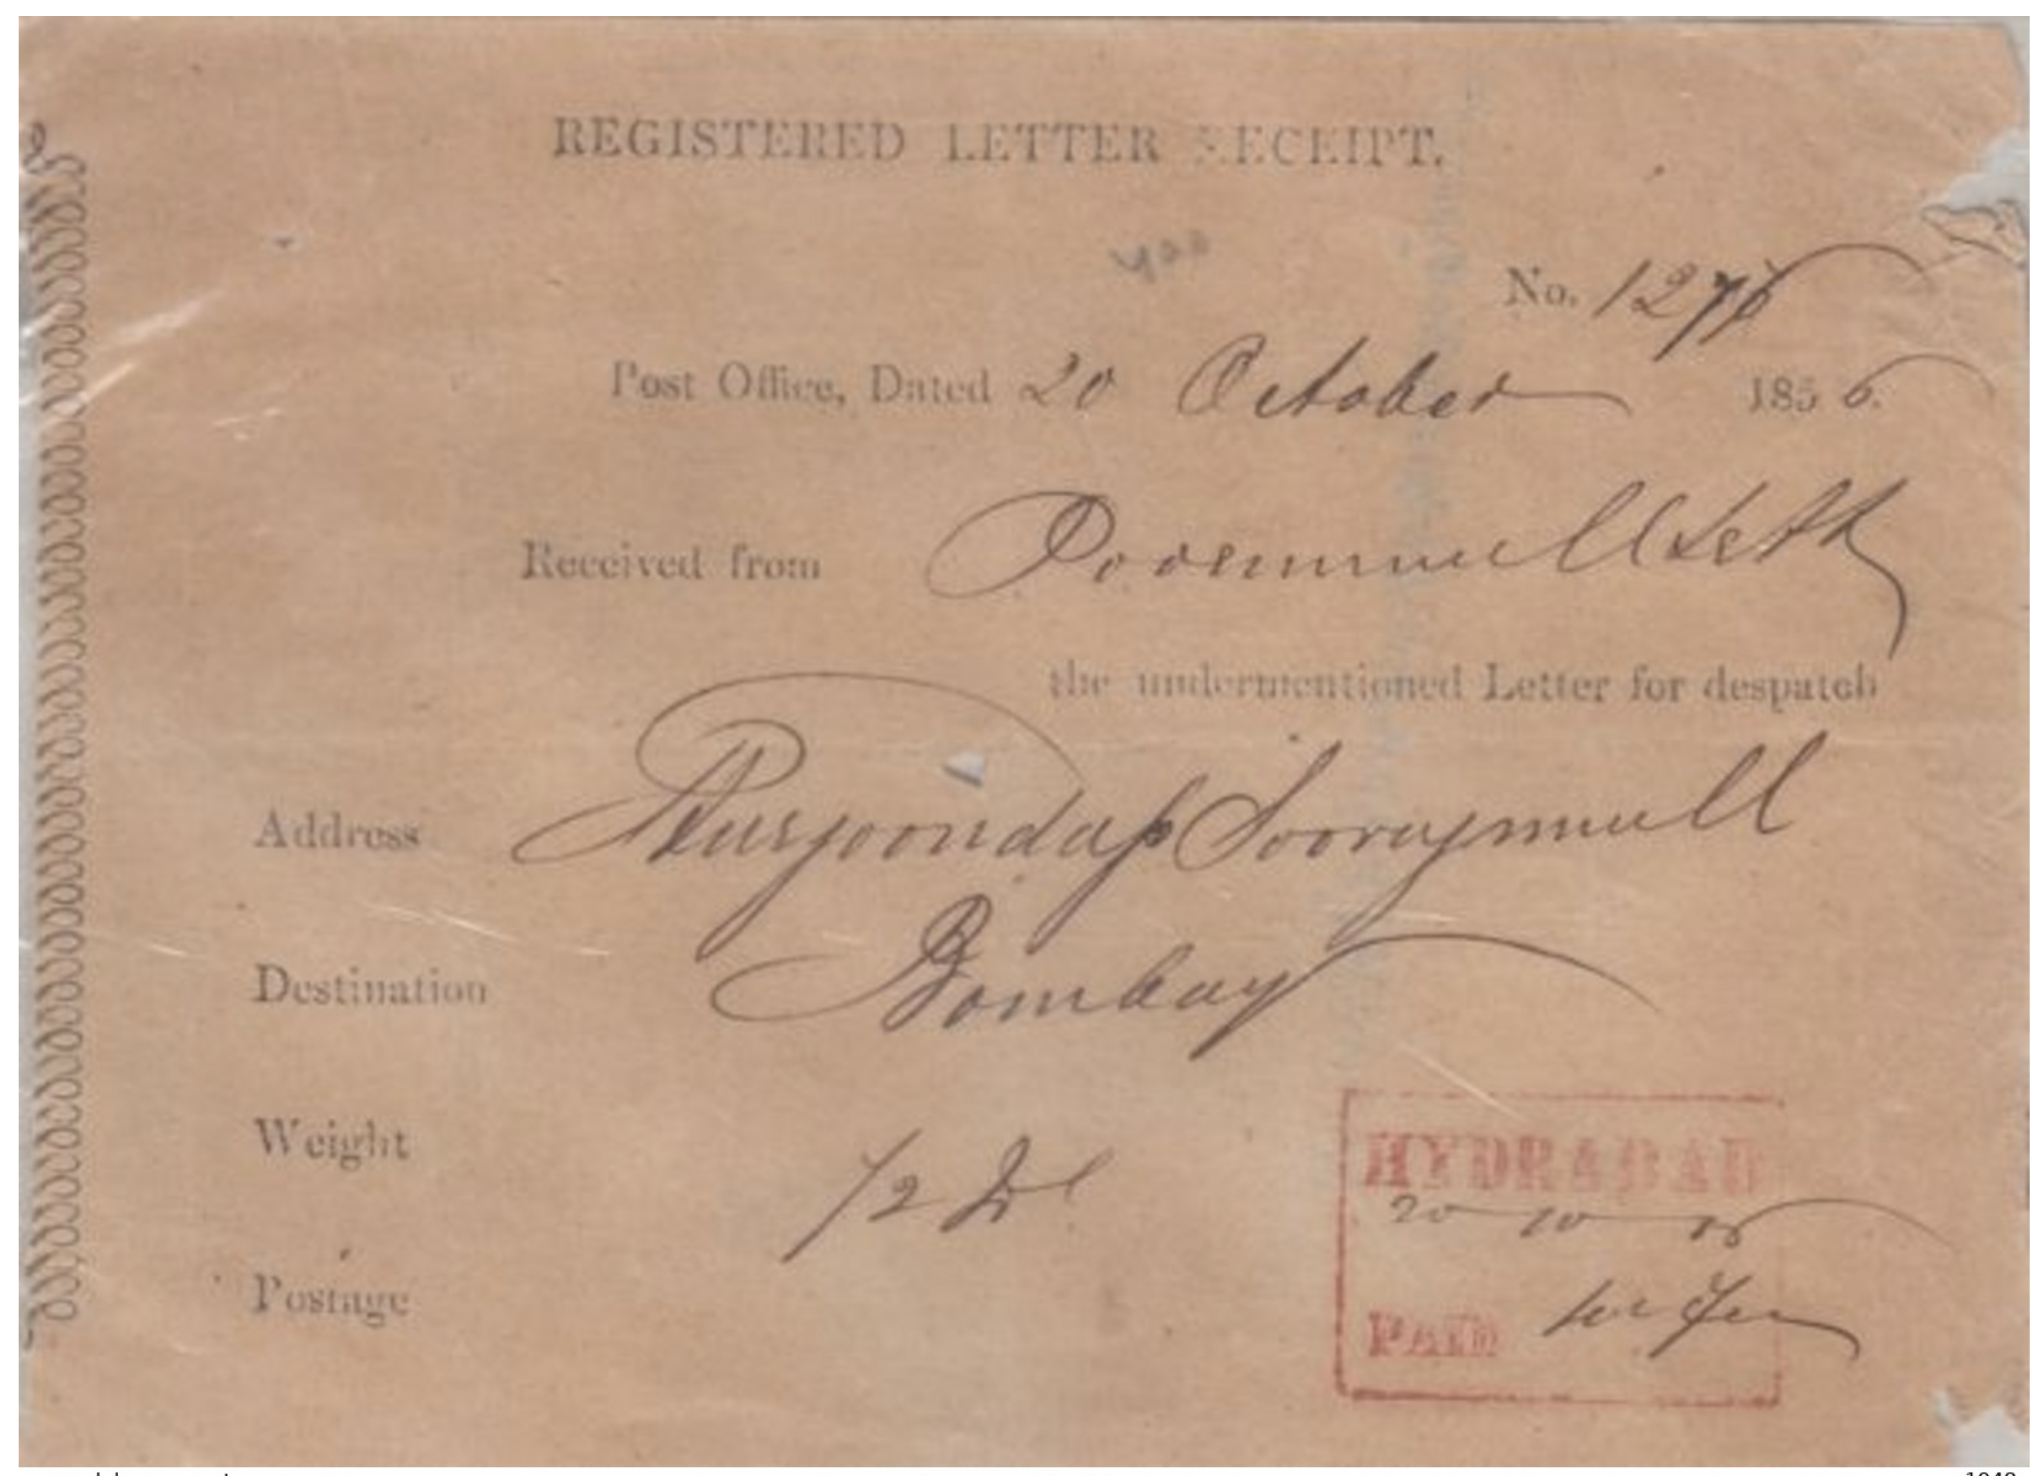 REGISTERED LETTER RECEIPT.
No. 1276
Post Office, Dated 20 October 1856.
Received from Poonumull Seth
the undermentioned Letter for despatch
Address Hurgoondass Soorujmull
Destination Bombay
Weight 1/2
HYDRABAD
20 10
Postage
PAID